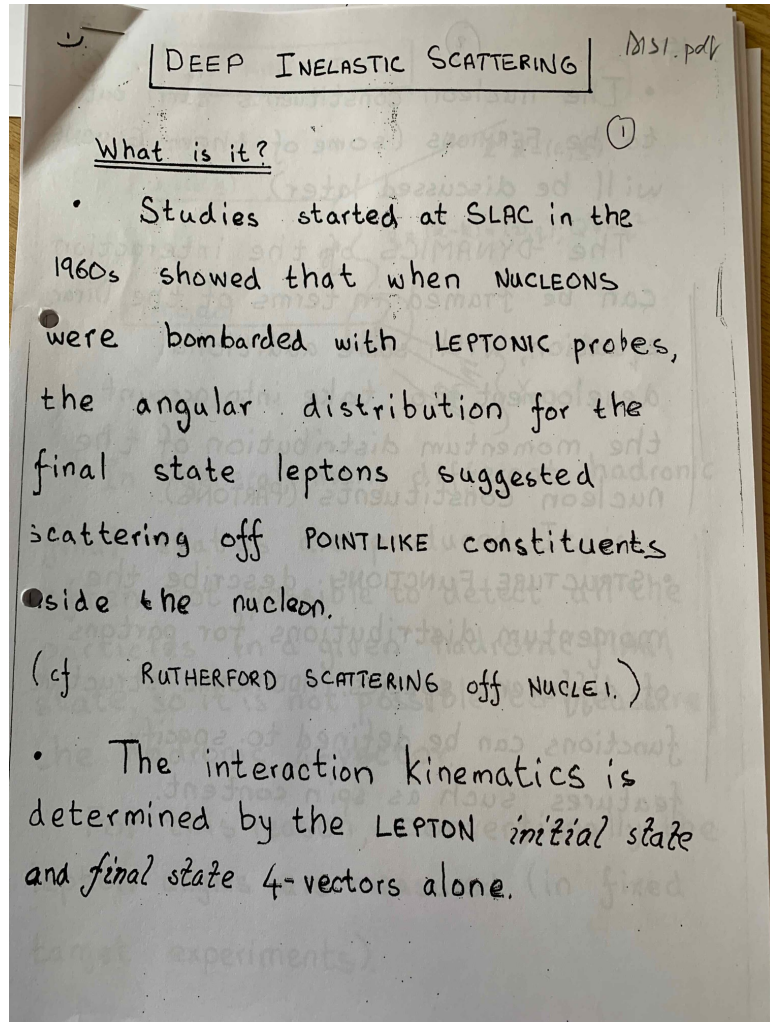 DIS1.pdf
DEEP INELASTIC SCATTERING
1
What is it?
• Studies started at SLAC in the
1960s showed that when NUCLEONS
were bombarded with LEPTONIC probes,
the angular distribution for the
final state leptons suggested
scattering off POINTLIKE constituents
side the nucleon.
(cf RUTHERFORD SCATTERING off NUCLEI.)
• The interaction kinematics is
determined by the LEPTON initial state
and final state 4-vectors alone.
(in fixed
target experiments)